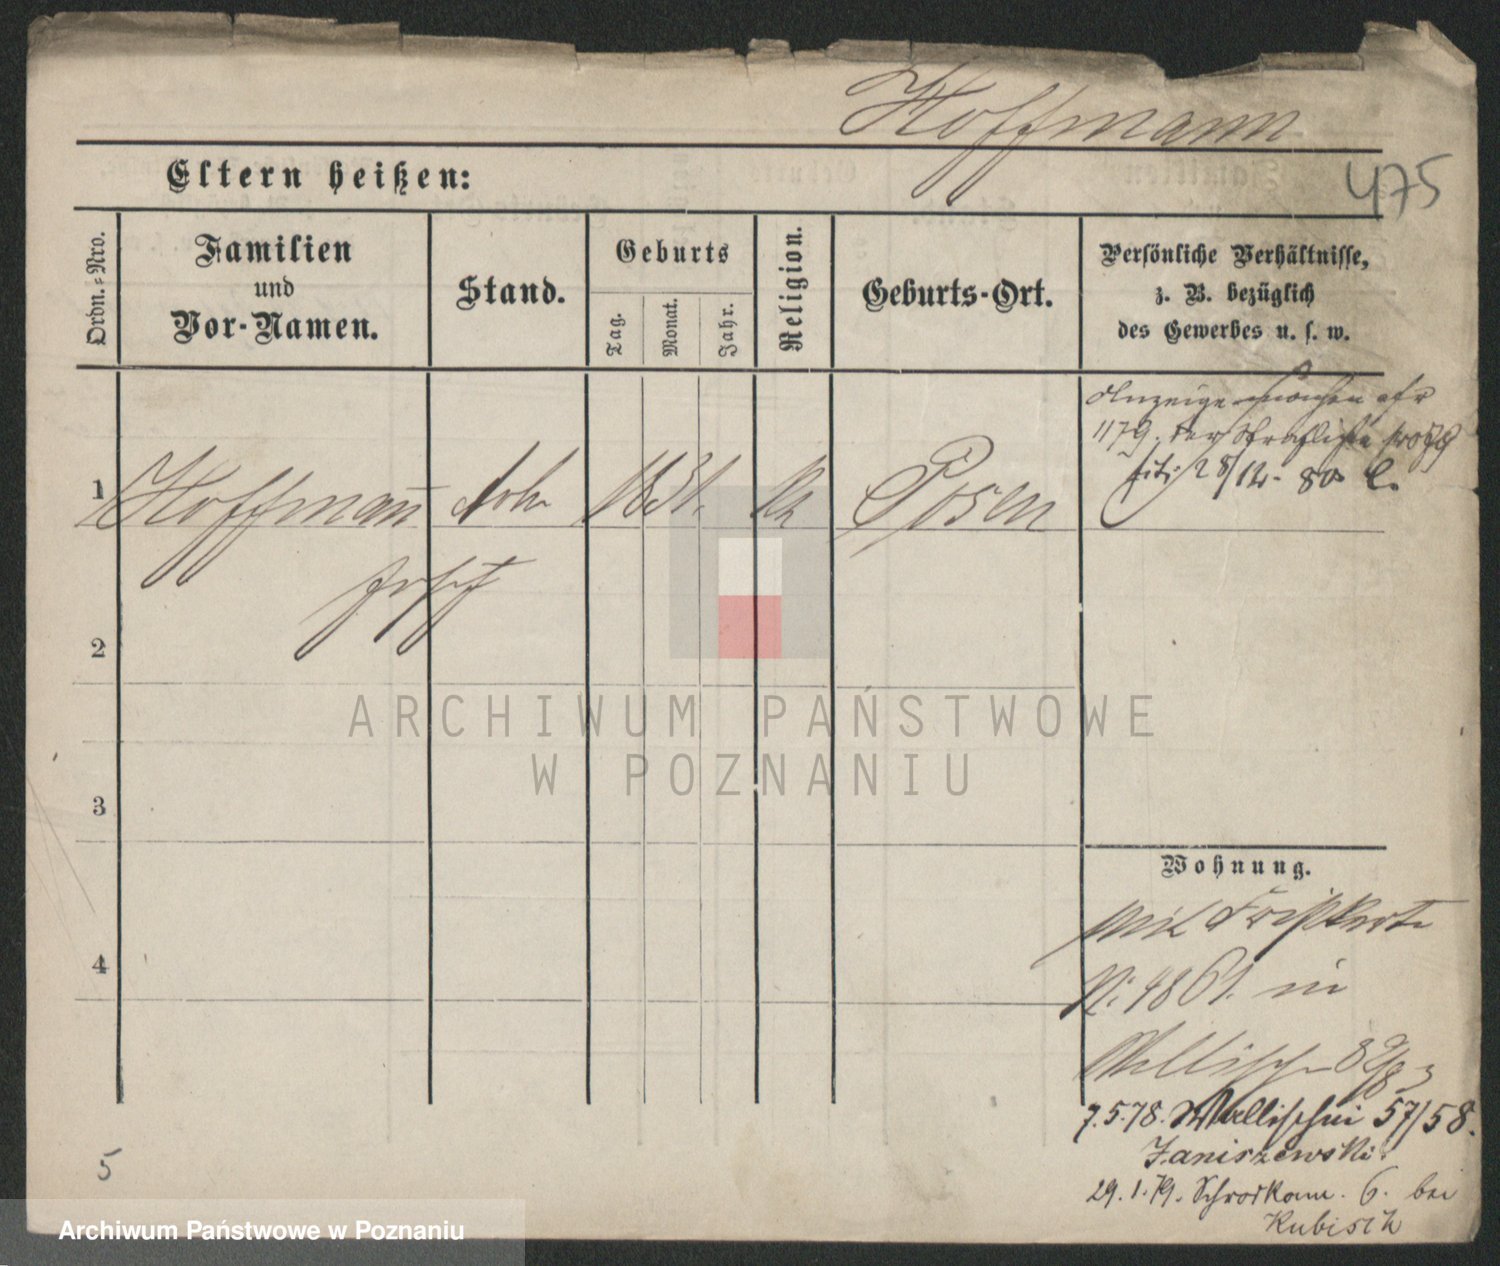 Hoffmann
475
Eltern heißen:
Ordn.-Nro.
Familien
und
Vor-Namen.
Stand.
Geburts
Tag.
Monat.
Jahr.
Religion.
Geburts-Ort.
Persönliche Verhältnisse,
z. B. bezüglich
des Gewerbes u. s. w.
Anzeige
1179. der
28/12. 80
1
Hoffmann
1831.
Posen
Josef
2
3
4
5
Wohnung.
mit
N: 4861. in
Wallischei
7.5.78. Wallischei 57/58.
Janiszewski.
29.1.79. Schrodkam. 6. bei
Kubisch
ARCHIWUM PAŃSTWOWE
W POZNANIU
Archiwum Państwowe w Poznaniu